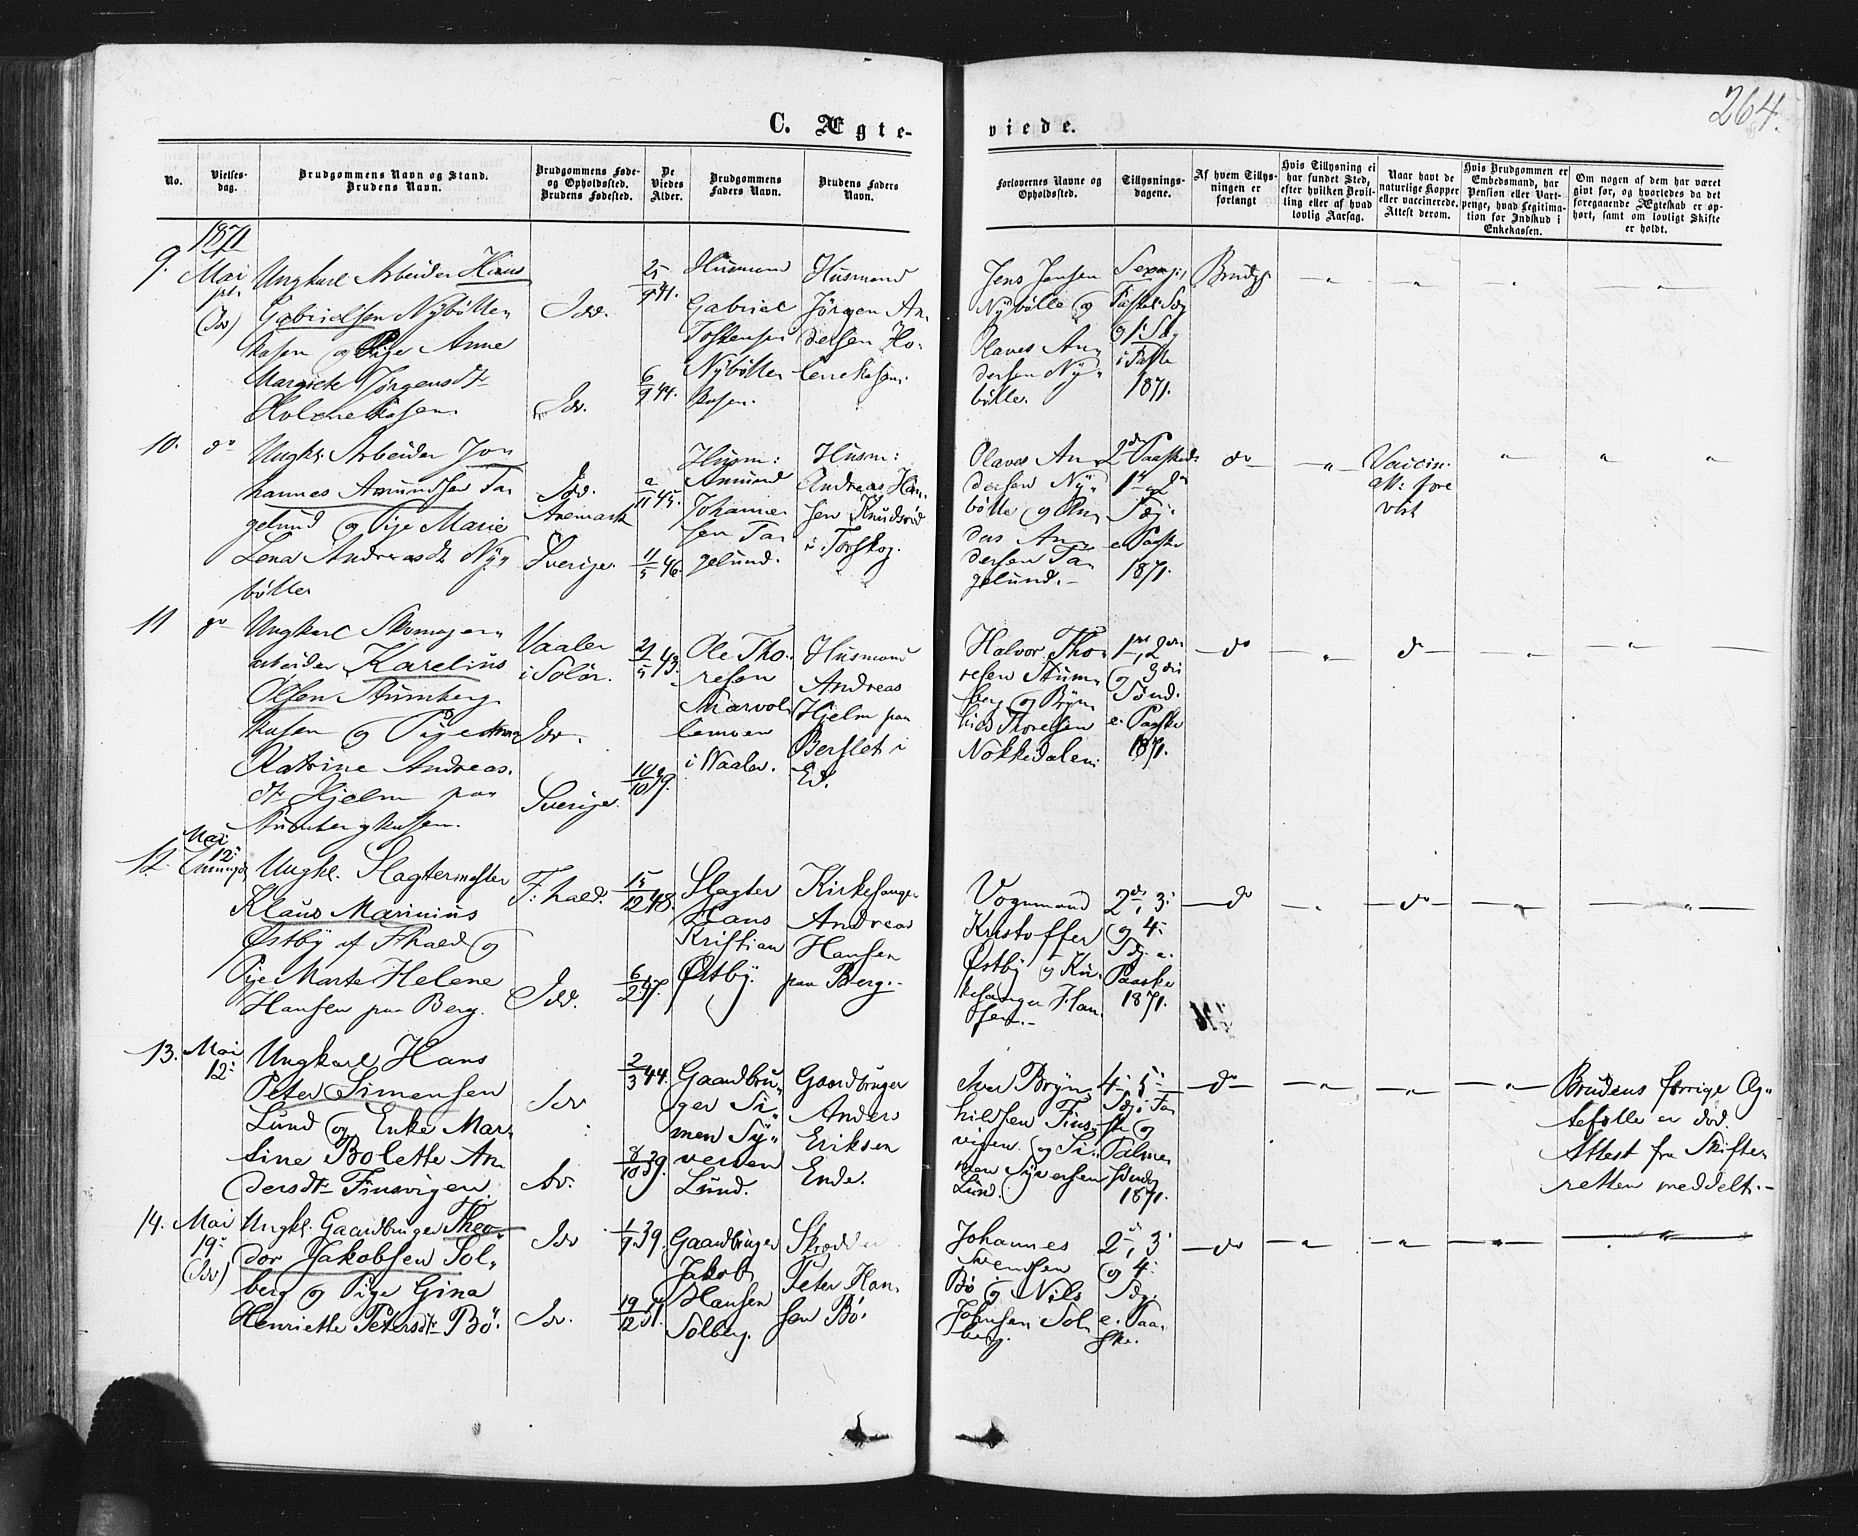 264.
C. Ægte-
viede.
No.
Vielses-
dag.
Brudgommens Navn og Stand.
Brudens Navn.
Brudgommens Føde-
og Opholdssted.
Brudens Fødested.
De
Viedes
Alder.
Brudgommens
Faders Navn.
Brudens Faders
Navn.
Forlovernes Navne og
Opholdssted.
Tillysnings-
dagene.
Af hvem Tillys-
ningen er
forlangt
Hvis Tillysning ei
har fundet Sted,
efter hvilken Bevil-
ling eller af hvad
lovlig Aarsag.
Naar havt de
naturlige Kopper
eller vaccinerede.
Attest derom.
Hvis Brudgommen er
Embedsmand, har
Pension eller Vart-
penge, hvad Legitima-
tion for Indskud i
Enkekassen.
Om nogen af dem har været
givt før, og hvorledes da det
foregaaende Ægteskab er op-
hørt, samt om lovligt Skifte
er holdt.
1871
9.
Mai
(Idd)
Ungkarl Arbeider Hans
Gabrielsen Nybølle
kasen og Pige Anne
Margrete Jørgensdt
Holenekasen
Idd.
Idd.
25/9 41.
6/9 44.
Husmand
Gabriel
Torkensen
Nybølle
kasen.
Husmand
Jørgen An
dersen Ho-
lenekasen.
Jens Jensen
Nybølle og
Olaves An
dersen Ny-
bølle.
Sexag.,
Faste Sdg
og 1ste Sdg
i Faste
1871.
Brudg.
10.
do
Ungkl. Arbeider Jo
hannes Amundsen Ta
gelund og Pige Marie
Lena Andreasdt Ny-
bølle
Idd.
Aremark
Sverige.
2/11 45.
11/5 46.
Husm:
Amund
Johanne
sen Ta
gelund.
Husm:
Andreas Han
sen Knudsrød
i Torskog.
Olaves An
dersen Ny-
bølle og An
ders An
dersen Ta
gelund.-
2den Paasked:
1ste og 2den
Sdg.
e. Paaske
1871.
do
Vaccin.
att: fore
vist
11
do
Ungkarl Skomager
arbeider Karelius
Olsen Stumberg
kasen og Pige Anna
Katrine Andreas
dt Hjelm paa
Stumbergkasen.
Vaaler
i Solør.
Idd.
Sverige.
21/5 43.
10/10 39.
Ole Tho-
resen
Marvol
lemoen
i Waaler.
Husmand
Andreas
Hjelm paa
Berslet i
Ed.
Halvor Tho-
resen Stum-
berg og Bryn
hild Thoresen
Nokkedalen
1ste, 2den
og 3die
Sønd.
e. Paaske
1871.
do
do
12.
Mai
12:
Ungkl. Slagtermester
Klaus Marinius
Østby af Fhald og
Pige Marte Helene
Hansen paa Berg.
F: hald.
Idd.
15/12 48.
6/2 47.
Slagter
Hans
Kristian
Østby.
Kirkesanger
Andreas
Hansen
paa Berg.-
Vognmand
Kristoffer
Østby og Kir-
kesanger Han
sen.-
2den, 3:
og 4:
Sdg. e.
Paaske
1871.
do
do
13.
Mai
12:
Ungkarl Hans
Peter Simensen
Lund og Enke Mar-
tine Bolette An
dersdt Finsvigen.
Idd
Idd.
2/3 44.
8/10 39.
Gaardbru-
ger Si-
men Sy-
versen
Lund.
Gaardbruger
Anders
Eriksen
Ende.
Iver Bryn
hildsen Fins-
vigen og Si-
men Syversen
Lund.
4-, 5-
Sdg i Fa
ste og
Palme
sønde
1871.
do
Brudens forrige Æg-
tefælle er død.
Attest fra Skifte
retten meddelt.-
14.
Mai
19:
(Idd)
Ungkl. Gaardbruger Theo-
dor Jakobsen Sol-
berg og Pige Gina
Henriette Petersdt Bø.
Idd
Idd.
1/9 39.
19/12 51.
Gaardbruger
Jakob
Hansen
Solberg.
Skrædder
Peter Han
sen Bø.
Johannes
Svendsen
Bø og Nils
Johnsen Sol
berg.
2den, 3
og 4:
Sdg.
e. Paa
ske.
do